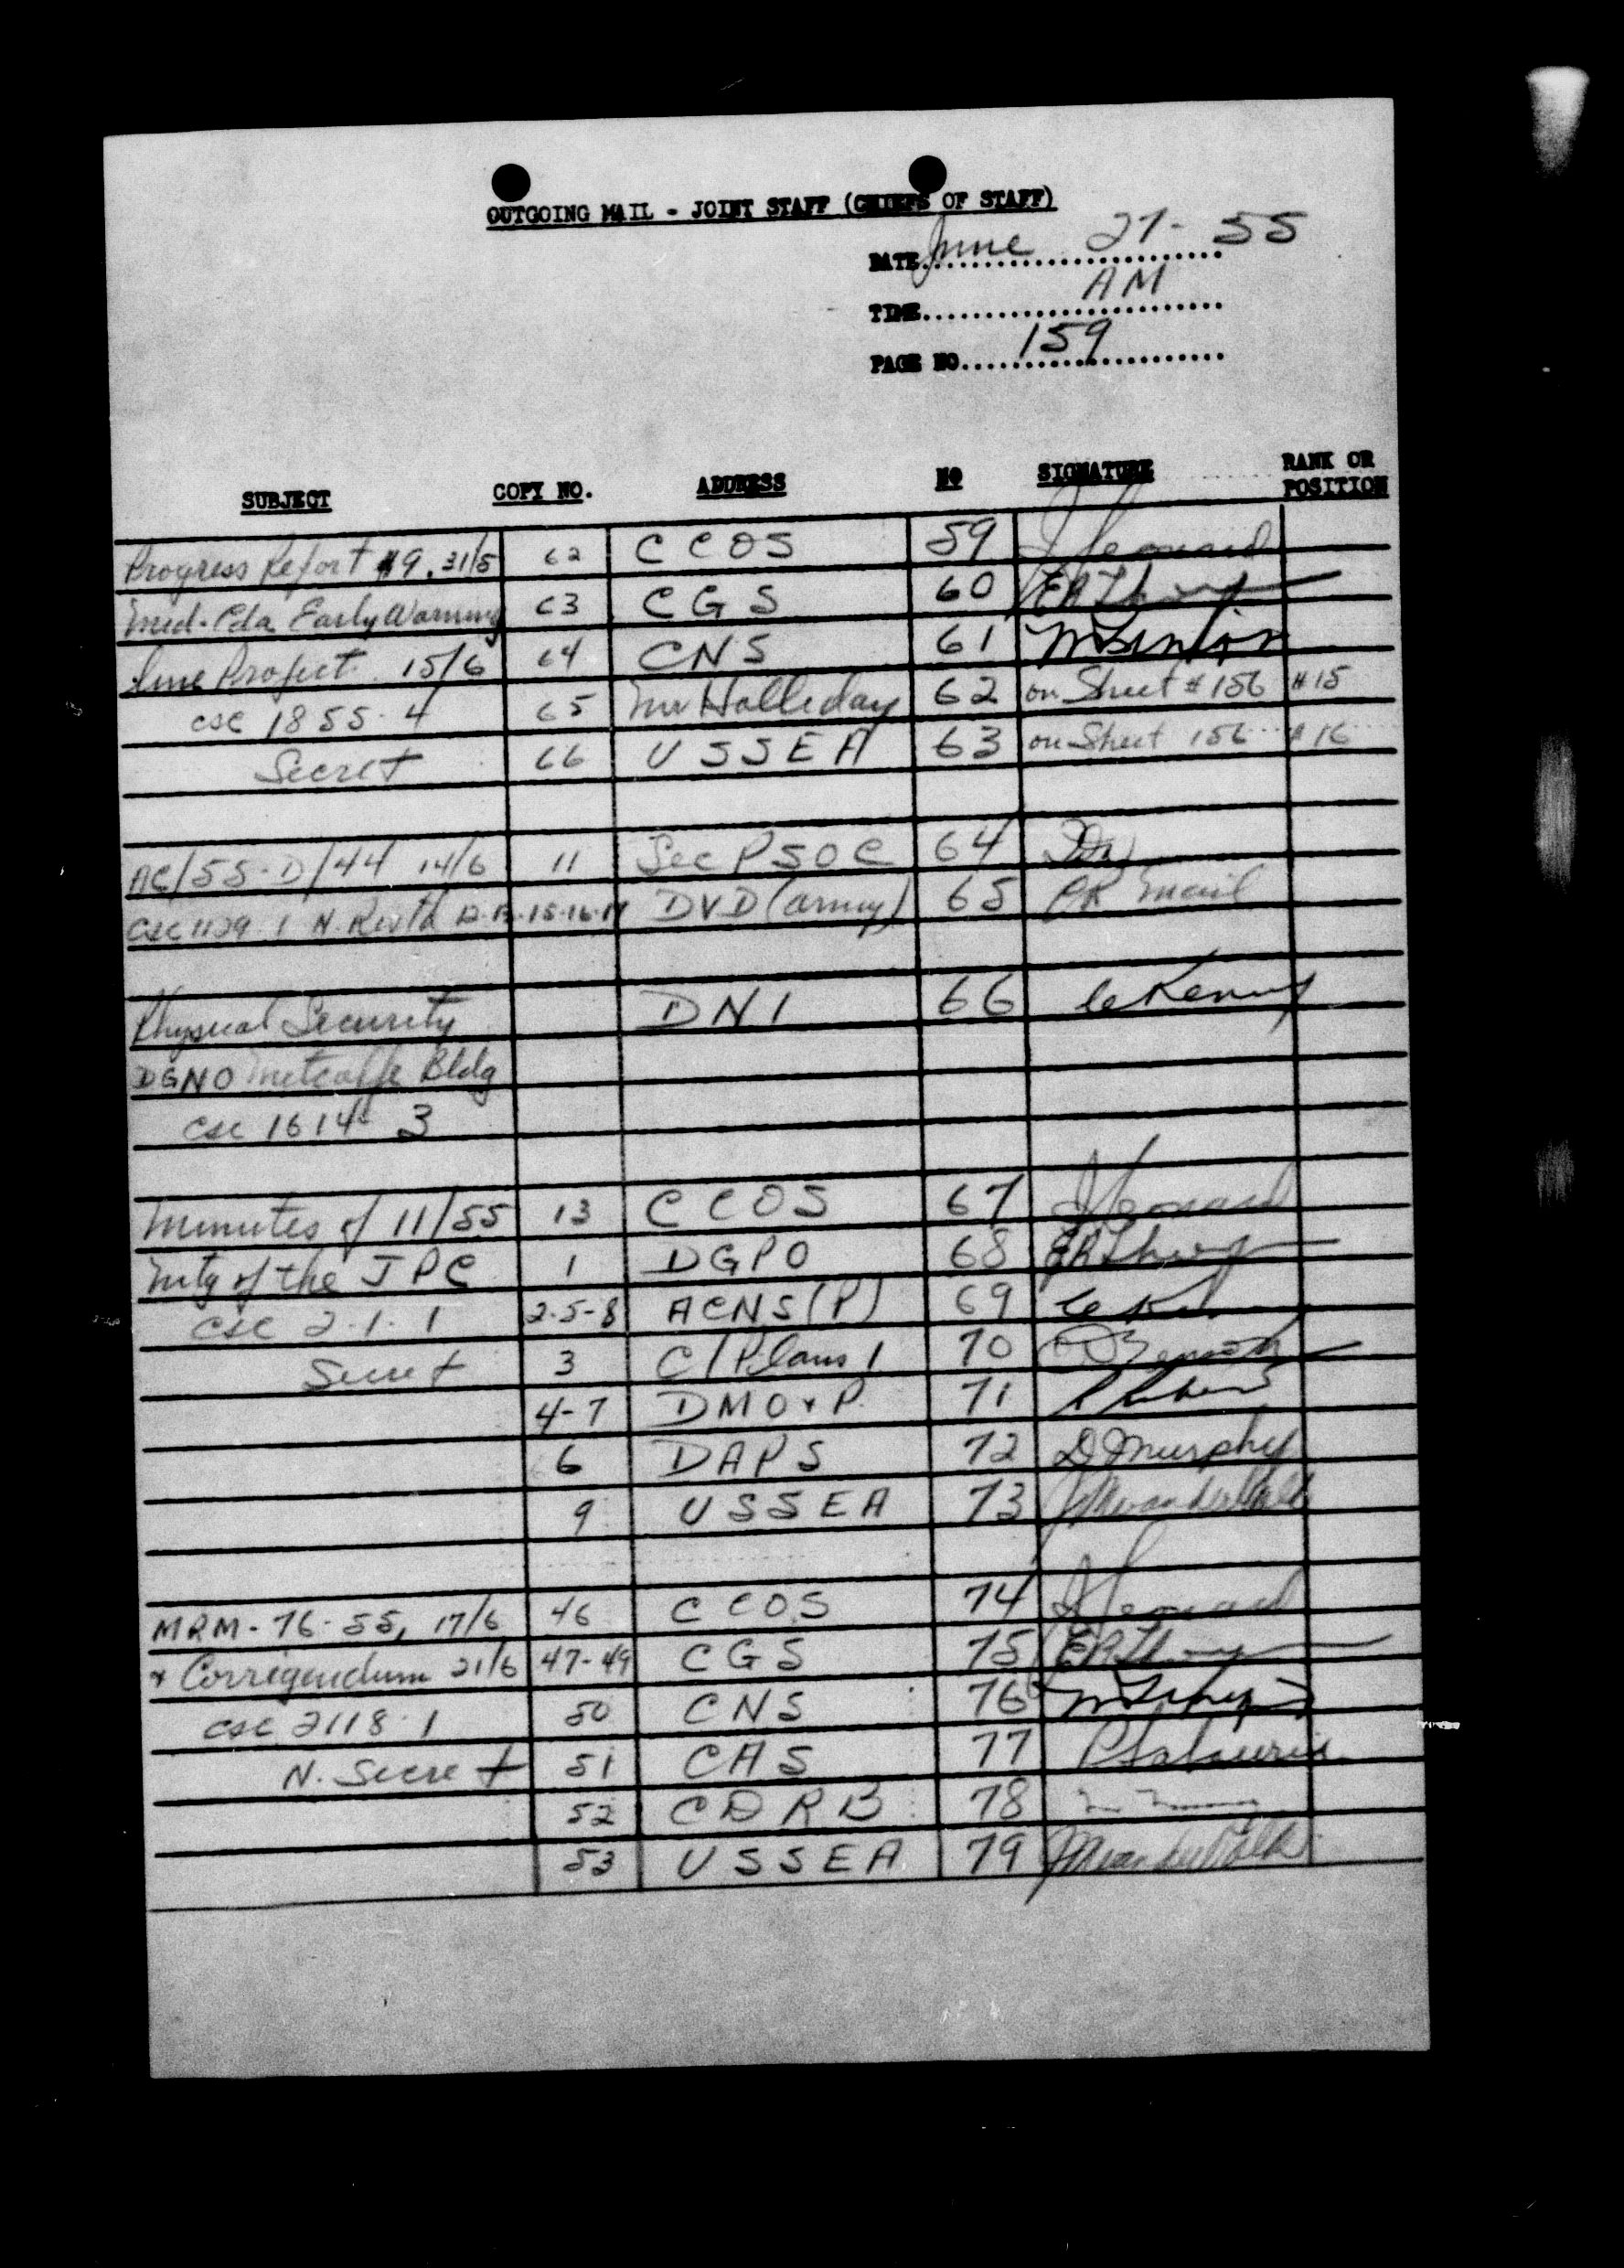 OUTGOING MAIL - JOINT STAFF (CHIEFS OF STAFF)
DATE June 27-55
TIME AM
PAGE NO 159
SUBJECT COPY NO. ADDRESS NO SIGNATURE RANK OR POSITION
Progress Report #9. 31/5 62 CCOS 59 Leonard
Mid-Cda Early Warning 63 CGS 60
Line Project 15/6 64 CNS 61
csc 1855.4 65 Mr Halliday 62 on Sheet #156 #15
Secret 66 USSEA 63 on Sheet 156 #16
AC/55-D/44 14/6 11 Sec PSOC 64
csc 1129.1 DVD (army) 65 mail
Physical Security DNI 66
DGNO Metcalfe Bldg
csc 1614 3
Minutes of 11/55 13 CCOS 67 Leonard
Mtg of the JPC 1 DGPO 68
csc 2.1.1 2-5-8 ACNS (P) 69
Secret 3 C/Plans 1 70
4-7 DMO & P. 71
6 DAPS 72 D Murphy
9 USSEA 73
MRM-76-55, 17/6 46 CCOS 74 Leonard
& Corrigendum 21/6 47-49 CGS 75
csc 2118.1 50 CNS 76
N. Secret 51 CAS 77
52 CDRB 78
53 USSEA 79